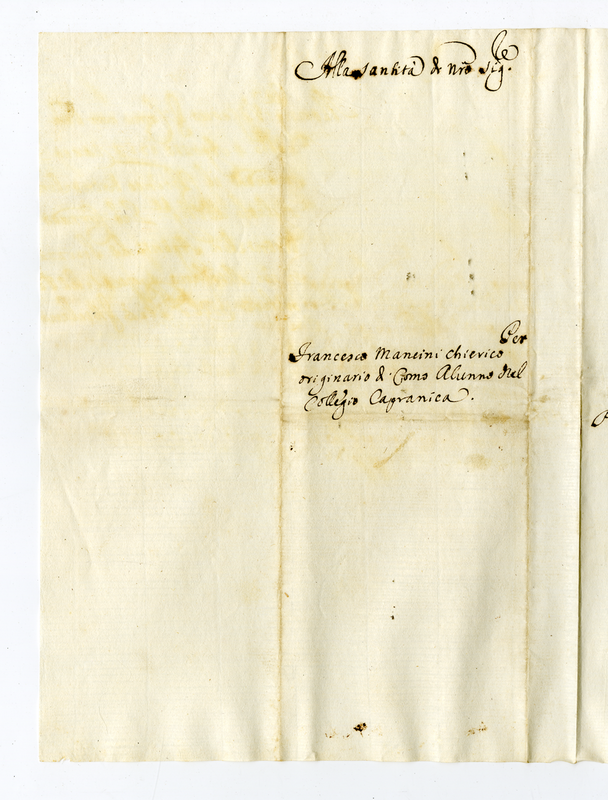 Alla santità di nrõ Sig.re
Per
Francesco Mancini Chierico
originario di Como Alunno del
Collegio Capranica.